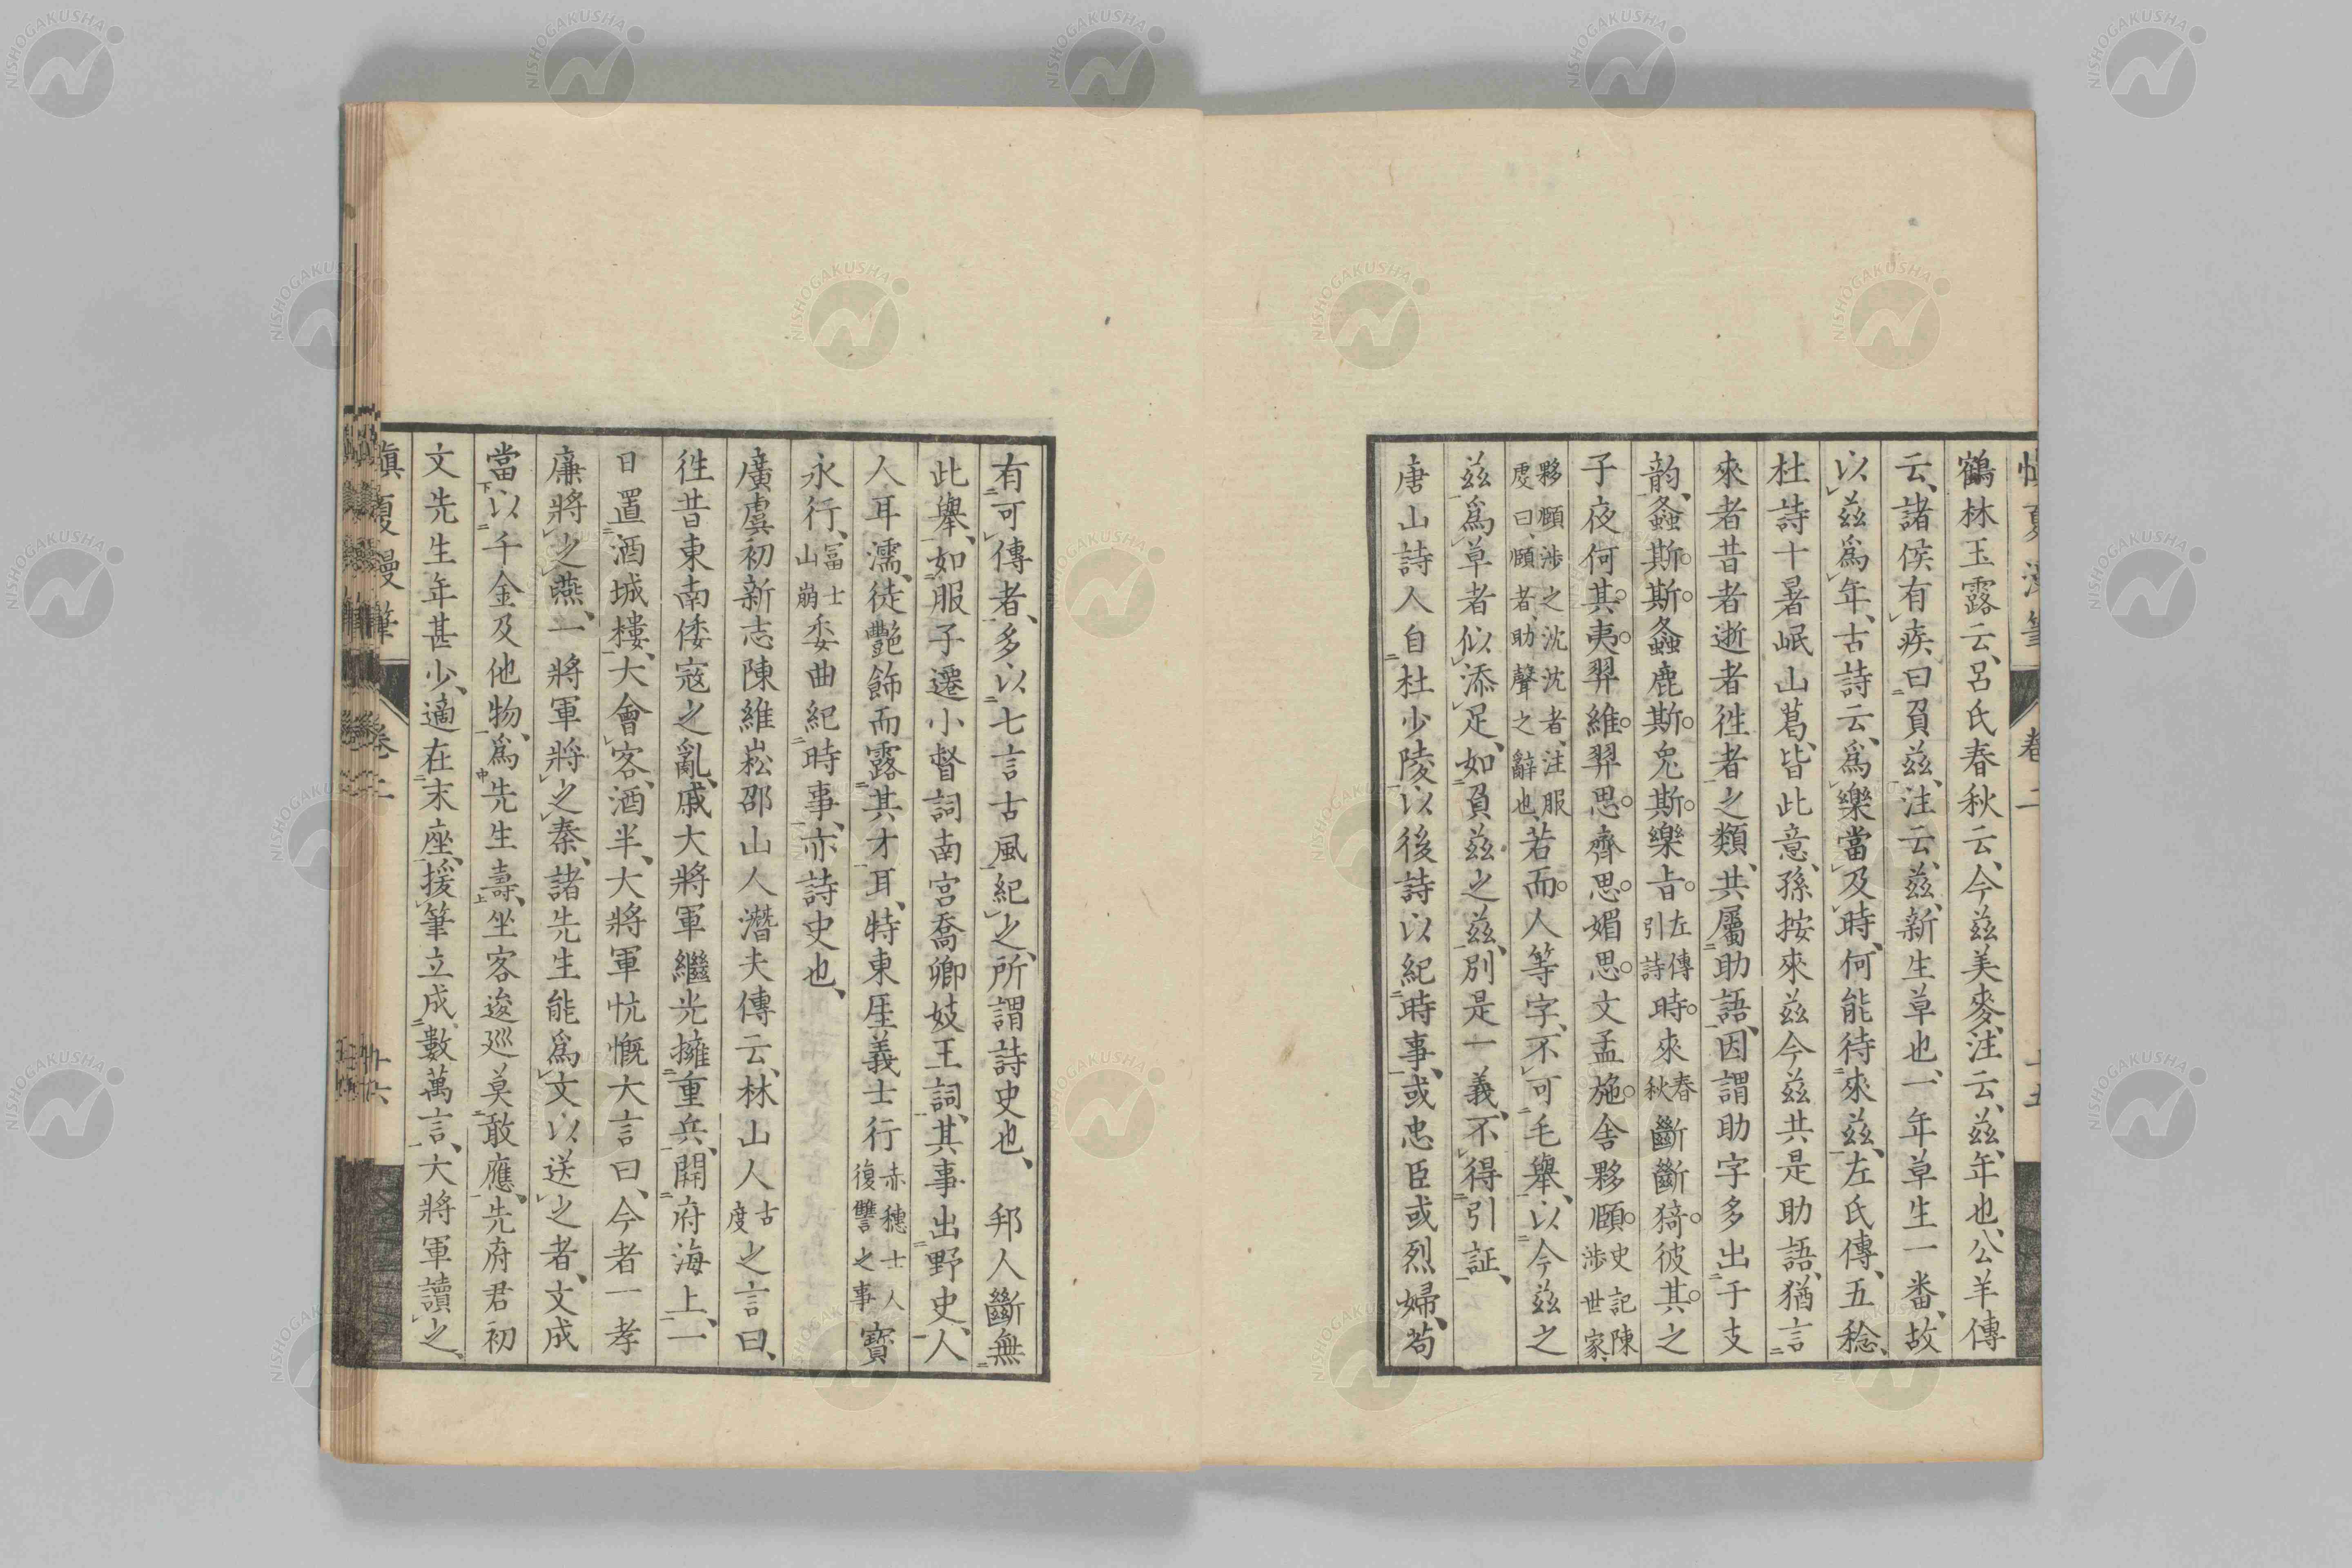 鶴林玉露云、呂氏春秋云、今茲美麥、注云、茲、年也、公羊傳
云、諸侯有疾曰負茲、注云、茲、新生草也、一年草生一番、故
以茲爲年、古詩云、爲樂當及時、何能待來茲、左氏傳、五稔、
杜詩十暑岷山葛、皆此意、孫按來茲今茲共是助語、猶言
來者昔者逝者徃者之類、共屬助語、因謂助字多出于支
韵、螽斯斯螽鹿斯兔斯樂旨引詩左傳時來春秋斷斷猗彼其之
子夜何其夷羿維羿思齊思媚思文孟施舍夥頤史記陳涉世家、
夥頤涉之沈沈者、注服虔曰、頤者、助聲之辭也、若而人等字、不可毛舉、以今茲之
茲爲草者似添足、如負茲之茲、別是一義、不得引証、
唐山詩人自杜少陵以後詩以紀時事、或忠臣或烈婦、苟
有可傳者、多以七言古風紀之、所謂詩史也、邦人斷無
此舉、如服子遷小督詞南宮喬卿妓王詞、其事出野史、人
人耳濡、徒艷飾而露其才耳、特東厓義士行赤穗士人復讐之事寳
永行、冨士山崩委曲紀時事、亦詩史也、
廣虞初新志陳維崧邵山人潛夫傳云、林山人古度之言曰、
徃昔東南倭寇之亂、戚大將軍繼光擁重兵、開府海上、一
日置酒城樓、大會客、酒半、大將軍忼慨大言曰、今者一孝
廉將之燕、一將軍將之秦、諸先生能爲文以送之者、文成
當以千金及他物、爲先生壽、坐客逡巡莫敢應、先府君初
文先生年甚少、適在末座、援筆立成數萬言、大將軍讀之、
愼夏漫筆 卷二 十六
NISHOGAKUSHA